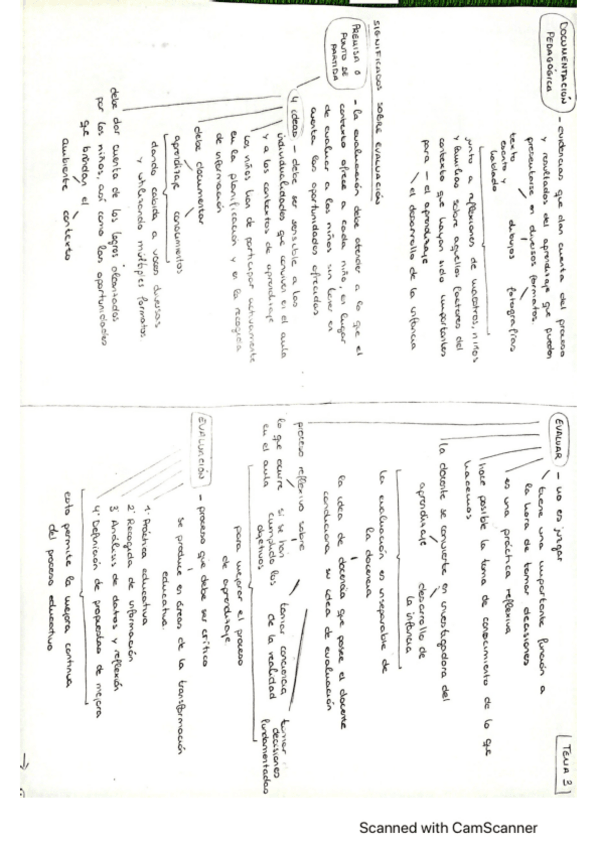 TEMA 3
EVALUAR - no es juzgar
tiene una importante función a
la hora de tomar decisiones
es una práctica reflexiva
hace posible la toma de conocimiento de lo que
hacemos
la docente se convierte en investigadora del
aprendizaje desarrollo de
la infancia
la evaluación es inseparable de
la docencia
la idea de docencia que posee el docente
condiciona su idea de evaluación
proceso reflexivo sobre
lo que ocurre
en el aula
si se han
cumplido los
objetivos
tomar conciencia
de la realidad
tomar
decisiones
fundamentadas
para mejorar el proceso
de aprendizaje
EVALUACIÓN - proceso que debe ser crítico
se produce en áreas de la transformación
educativa
1º Práctica educativa
2º Recogida de información
3º Análisis de datos y reflexión
4º Definición de propuestas de mejora
esto permite la mejora continua
del proceso educativo
DOCUMENTACIÓN
PEDAGÓGICA
- evidencias que dan cuenta del proceso
y resultados del aprendizaje que pueden
presentarse en diversos formatos
texto
escrito y
hablado
dibujos
fotografías
junto a reflexiones de maestros, niños
y familias sobre aquellos factores del
contexto que hayan sido importantes
para - el aprendizaje
el desarrollo de la infancia
SIGNIFICADOS SOBRE EVALUACIÓN
PREMISA O
PUNTO DE
PARTIDA
- la evaluación debe atender a lo que el
contexto ofrece a cada niño, en lugar
de evaluar a los niños sin tener en
cuenta las oportunidades ofrecidas
4 ideas - debe ser sensible a las
individualidades que conviven en el aula
y a los contextos de aprendizaje
los niños han de participar activamente
en la planificación y en la recogida
de información
debe documentar
aprendizaje conocimientos
dando cabida a voces diversas
y utilizando múltiples formatos
debe dar cuenta de los logros alcanzados
por los niños, así como las oportunidades
que brindan el
ambiente contexto
Scanned with CamScanner